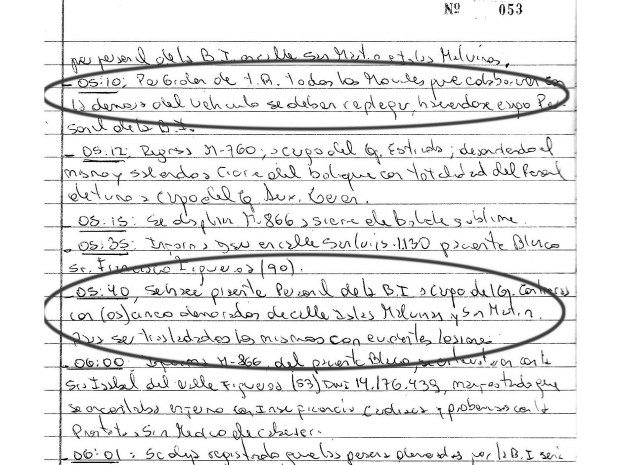 Nº 053
por personal de la B.I. en calle San Martin e Islas Malvinas.
- 05:10; Por Orden de T.A. todos los Moviles que colaboran con
la demora del vehiculo se deben replegar, haciendose cargo Per
sonal de la B.I.
- 05:12, Regresa M-760; a cargo del Of. Estrada; desertando el
mismo y saliendo del con totalidad del Personal
de turno a cargo del Of. Aux.
- 05:15: Se desplaza M-866 a sierra de
- 05:35: Informa que en calle San Luis 1130 paciente Blanco
Sr. Francisco Figueroa (90).
- 05:40, Se hace presente Personal de la B.I a cargo del Of. Contreras
con (05) cinco demorados de calle Islas Malvinas y San Martin.
Para ser trasladados los mismos con evidentes lesiones
- 06:00 M-866, del paciente Blanco, se entrevistaron con la
Sra Isabel del Valle Figueroa (53) DNI 14.176.439, manifestando que
se encontraba enfermo con Insuficiencia Cardiaca y problemas con la
Prostata, Sin Medico de cabecera.
- 06:01: Se deja registrado que las personas demoradas por la B.I serian